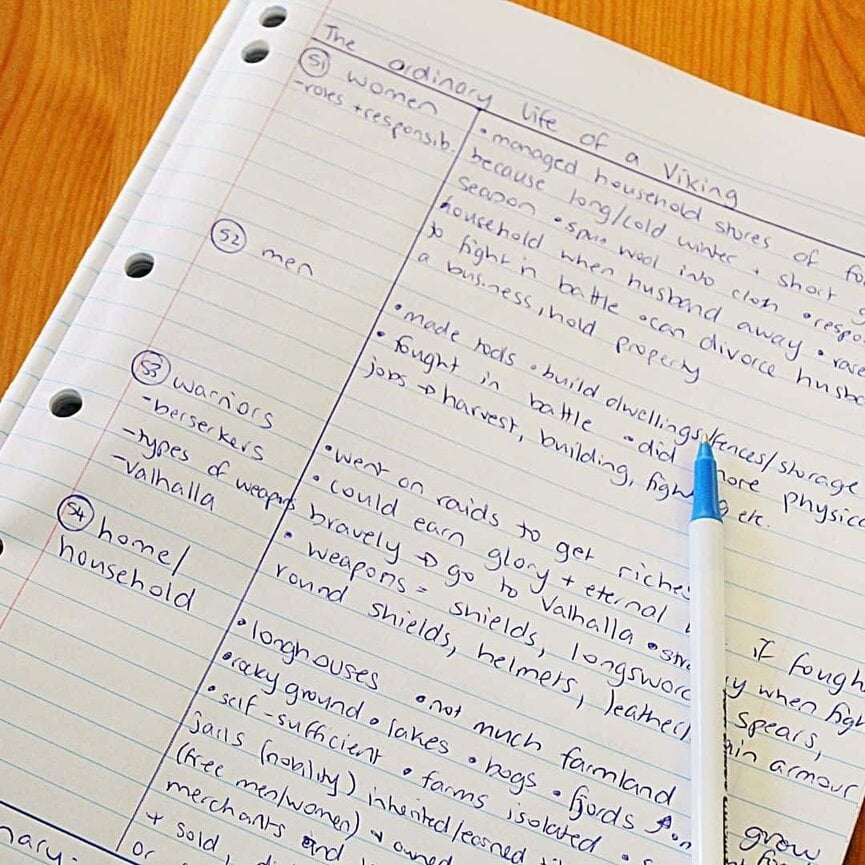 The ordinary life of a Viking
S1 women
-roles + responsib.
• managed household stores of
because long/cold winter + short
season • spun wool into cloth •
household when husband away •
to fight in battle • can divorce
a business, hold property
S2 men
• made tools • build dwellings/fences/storage
• fought in battle • did more
jobs → harvest, building, etc.
S3 warriors
-berserkers
-types of weapons
-Valhalla
• went on raids to get riches
• could earn glory + eternal if
bravely → go to Valhalla • when
• weapons = shields, spears,
round shields, helmets, armour
S4 home/
household
• longhouses • not much farmland
• rocky ground • lakes • bogs • fjords
• self-sufficient • farms isolated •
jarls (nobility) inherited/earned
(free men/women) owned
merchants
+ sold
or
grow